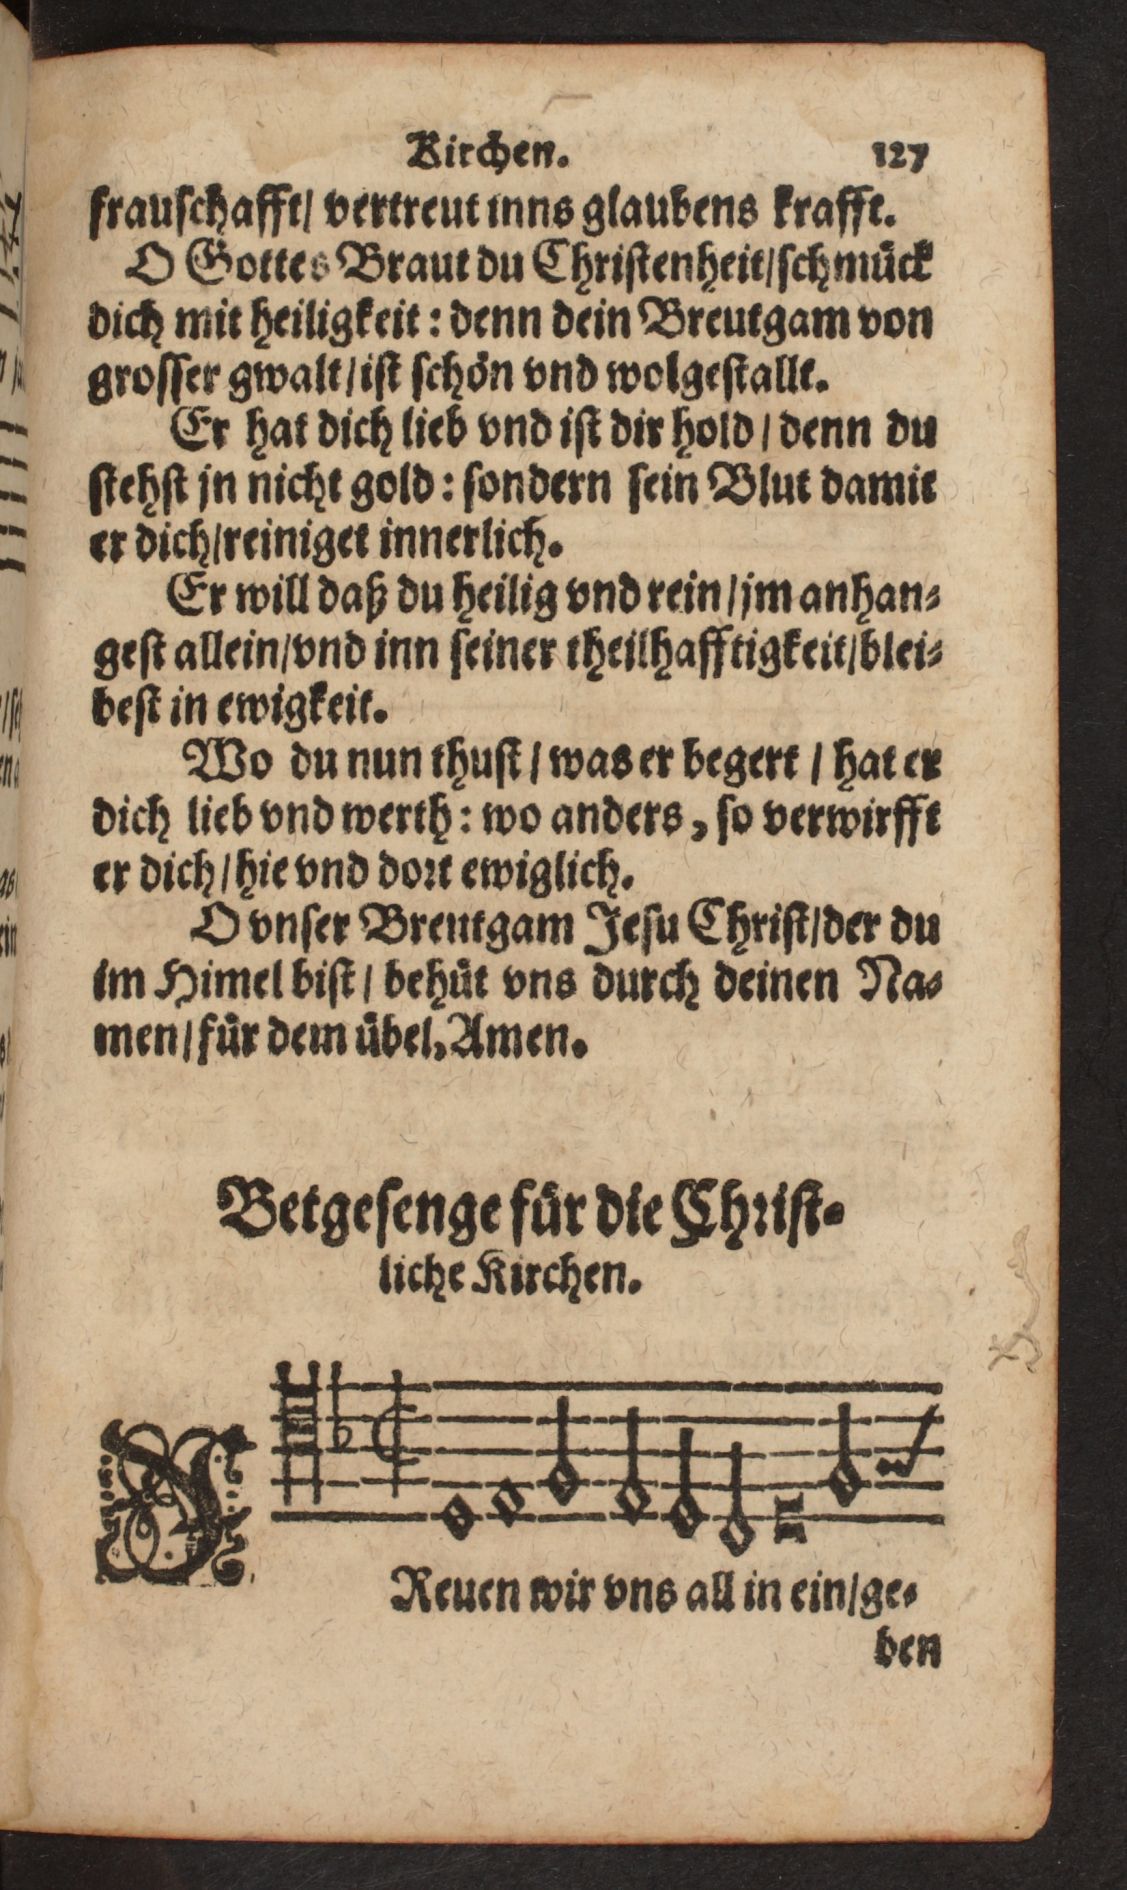 Kirchen. 127
frauschafft/ vertreut inns glaubens krafft.
O Gottes Braut du Christenheit/schmück
dich mit heiligkeit: denn dein Breutgam von
grosser gwalt/ist schön vnd wolgestallt.
Er hat dich lieb vnd ist dir hold/denn du
stehst jn nicht gold: sondern sein Blut damit
er dich/reiniget innerlich.
Er will daß du heilig vnd rein/jm anhan-
gest allein/vnd inn seiner theilhafftigkeit/blei-
best in ewigkeit.
Wo du nun thust/was er begert/hat er
dich lieb vnd werth: wo anders, so verwirfft
er dich/hie vnd dort ewiglich.
O vnser Breutgam Jesu Christ/der du
im Himel bist/behüt vns durch deinen Na-
men/für dem übel, Amen.
Betgesenge für die Christ-
liche Kirchen.
Reuen wir vns all in ein/ge-
ben